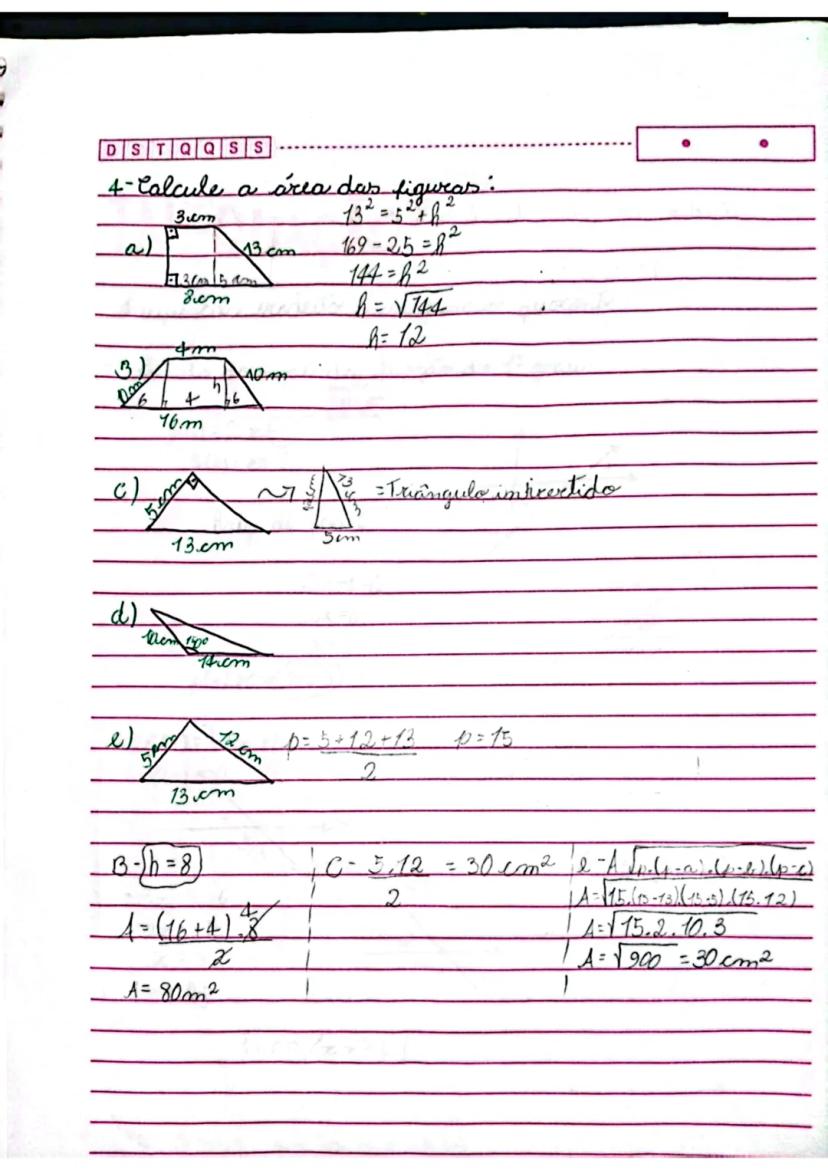 D S T Q Q S S
4-Calcule a área das figuras:
a) 3cm 13cm 3cm 5cm 8cm
13² = 5² + h²
169 - 25 = h²
144 = h²
h = √144
h = 12
B) 4m 10m 10m 6 4 h 6 16m
c) 5cm 13cm
13cm 5cm = Triângulo invertido
d) 10cm 150° 14cm
e) 5cm 12cm 13cm
p = 5+12+13 / 2 p = 15
B- h = 8
A = (16+4).8 4 / 2
A = 80m²
C - 5.12 / 2 = 30 cm²
e - A √p.(p-a).(p-b).(p-c)
A = √15.(15-13)(15-5).(15.12)
A = √15.2.10.3
A = √900 = 30cm²